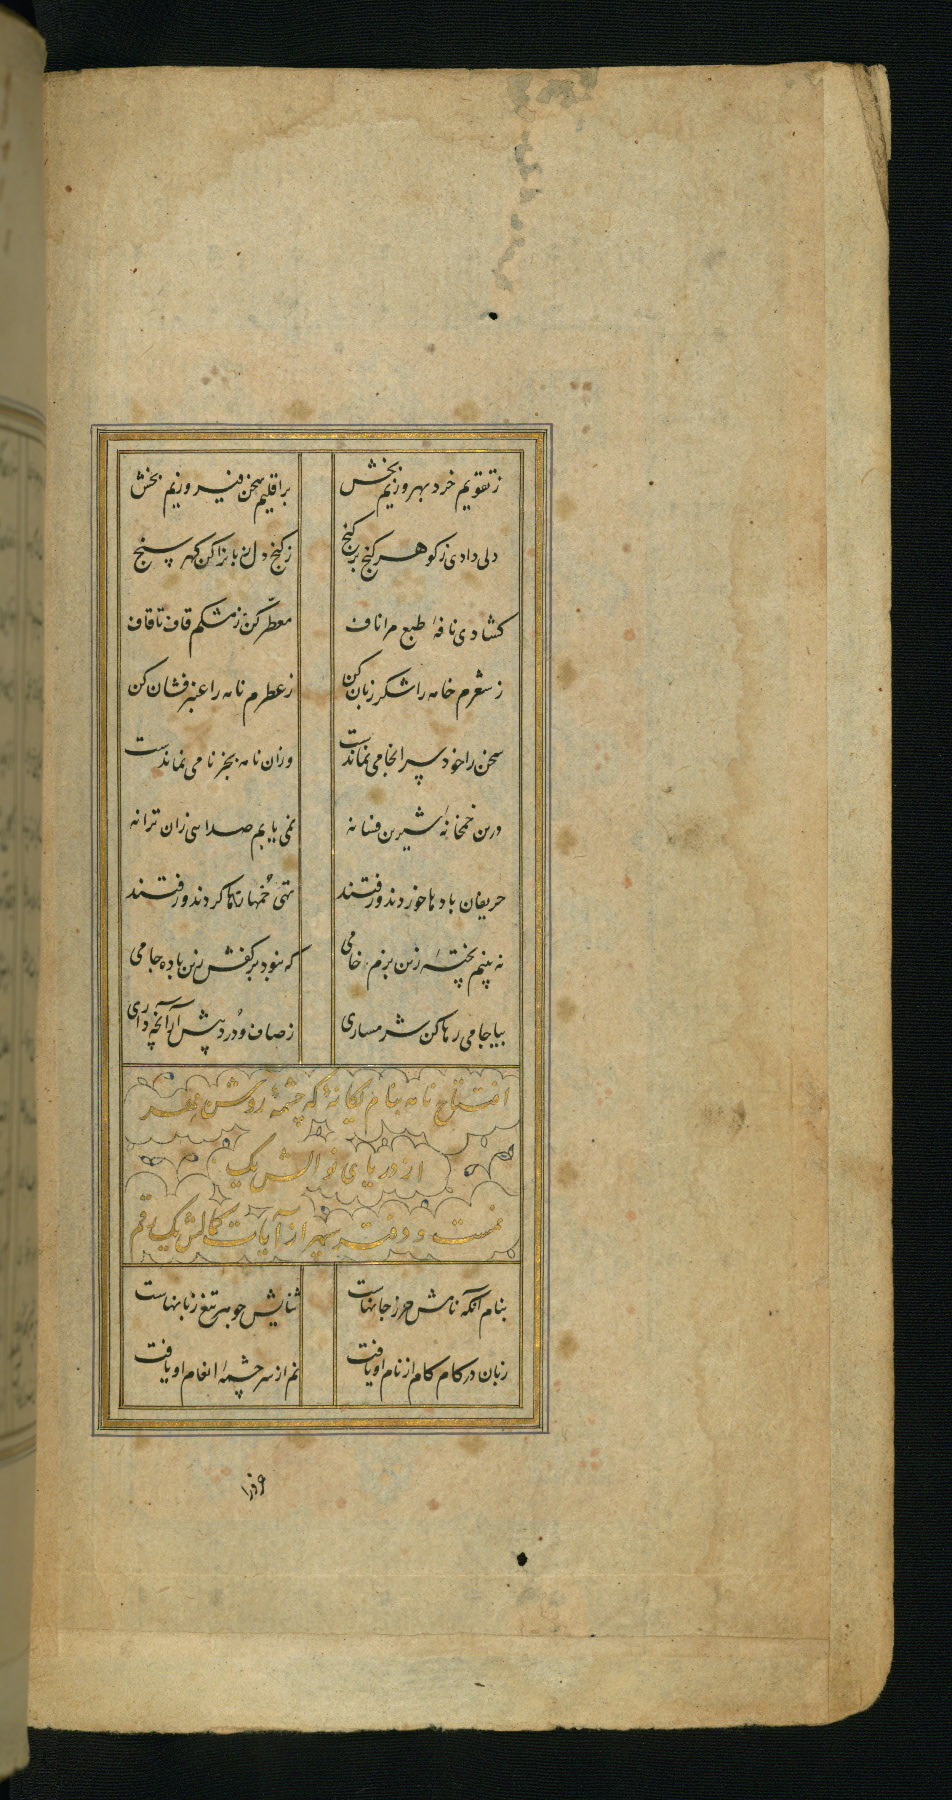 ز تقویم خرد بهروزیم بخش بر اقلیم سخن فیروزیم بخش
دلی دادی ز گوهر گنج بر گنج ز گنج دل زبانرا کن گهر سنج
گشادی نافهٔ طبع مرا ناف معطّر کن ز مشکم قاف تا قاف
ز شعرم خامه را شکر زبان کن ز عطرم نامه را عنبرفشان کن
سخن را خود سرانجامی نماندست وزان نامه بجز نامی نماندست
درین خمخانهٔ شیرین فسانه نمی یابم صدایی زان ترانه
حریفان بادها خوردند و رفتند تهی خُمها رها کردند و رفتند
نه بینم پختهٔ زین بزم خامی که بنود بر کفش زین باده جامی
بیا جامی رها کن شرمساری ز صاف و دُرد پیش آر آنچه داری
افتتاح نامه بنام یگانهٔ که چشمهٔ روشن مهر
از دریای نوالش یک
نمست و دفتر سپهر از آیات کمالش یک رقم
بنام آنکه نامش حرز جانهاست ثنایش جوهر تیغ زبانهاست
زبان در کام کام از نام او یافت نم از سرچشمهٔ انعام او یافت